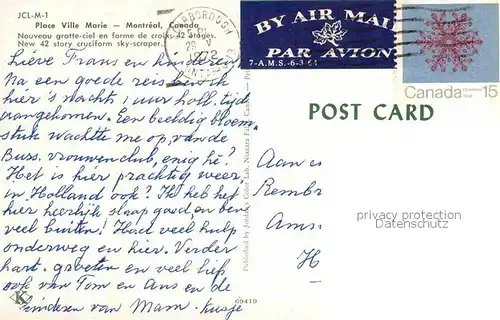 JCL-M-1
Place Ville Marie — Montréal, Canada
Nouveau gratte-ciel en forme de croix 42 étages.
New 42 story cruciform sky-scraper.
Lieve Frans en kinderen
Na een goede reis ben ik
hier 's nachts, uur holl. tijd
aangekomen. Een beeldig bloem-
stuk wachtte me op, van de
Buss. vrouwenclub, enig hè?
Het is hier prachtig weer,
in Holland ook? Ik heb het
hier heerlijk slaap goed, en ben
veel buiten! Had veel hulp
onderweg en hier. Verder
hart. groeten en veel liefs
ook van Tom en Ans en de
kinderen van Mam. kusje
K
SCARBOROUGH
1972
ONTARIO
BY AIR MAIL
PAR AVION
7-A.M.S.-6-3-64
Canada 15
POST CARD
Aan
Rembr
Ams
H
privacy protection
Datenschutz
69419